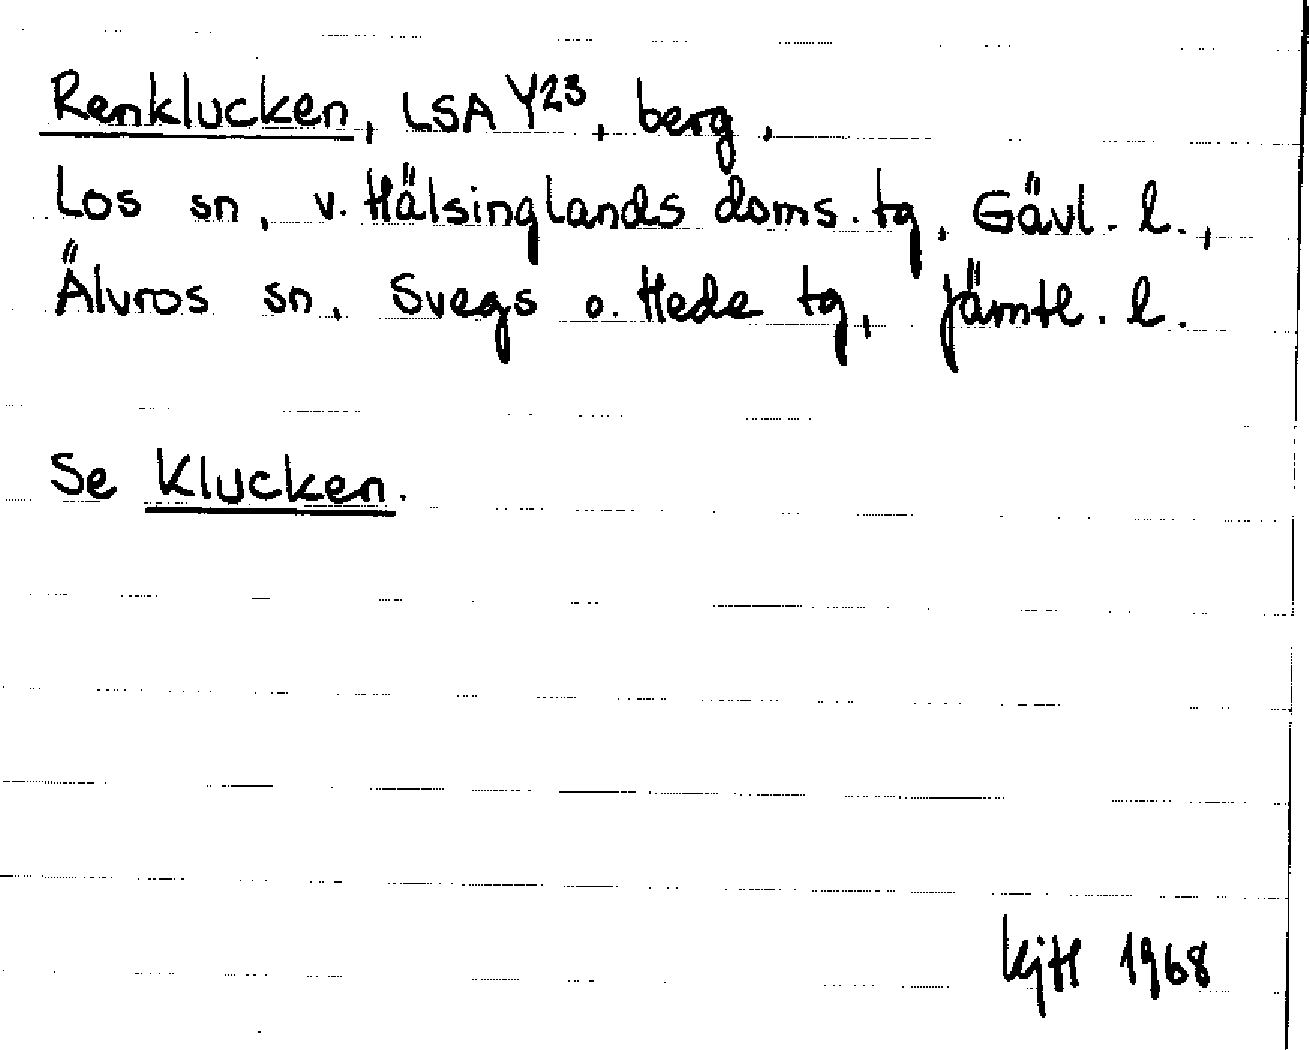 Renklucken, LSA Y23, berg,
Los sn, v. Hälsinglands doms. tg, Gävl. l.,
Älvros sn, Svegs o. Hede tg, Jämtl. l.
Se Klucken.
KjH 1968